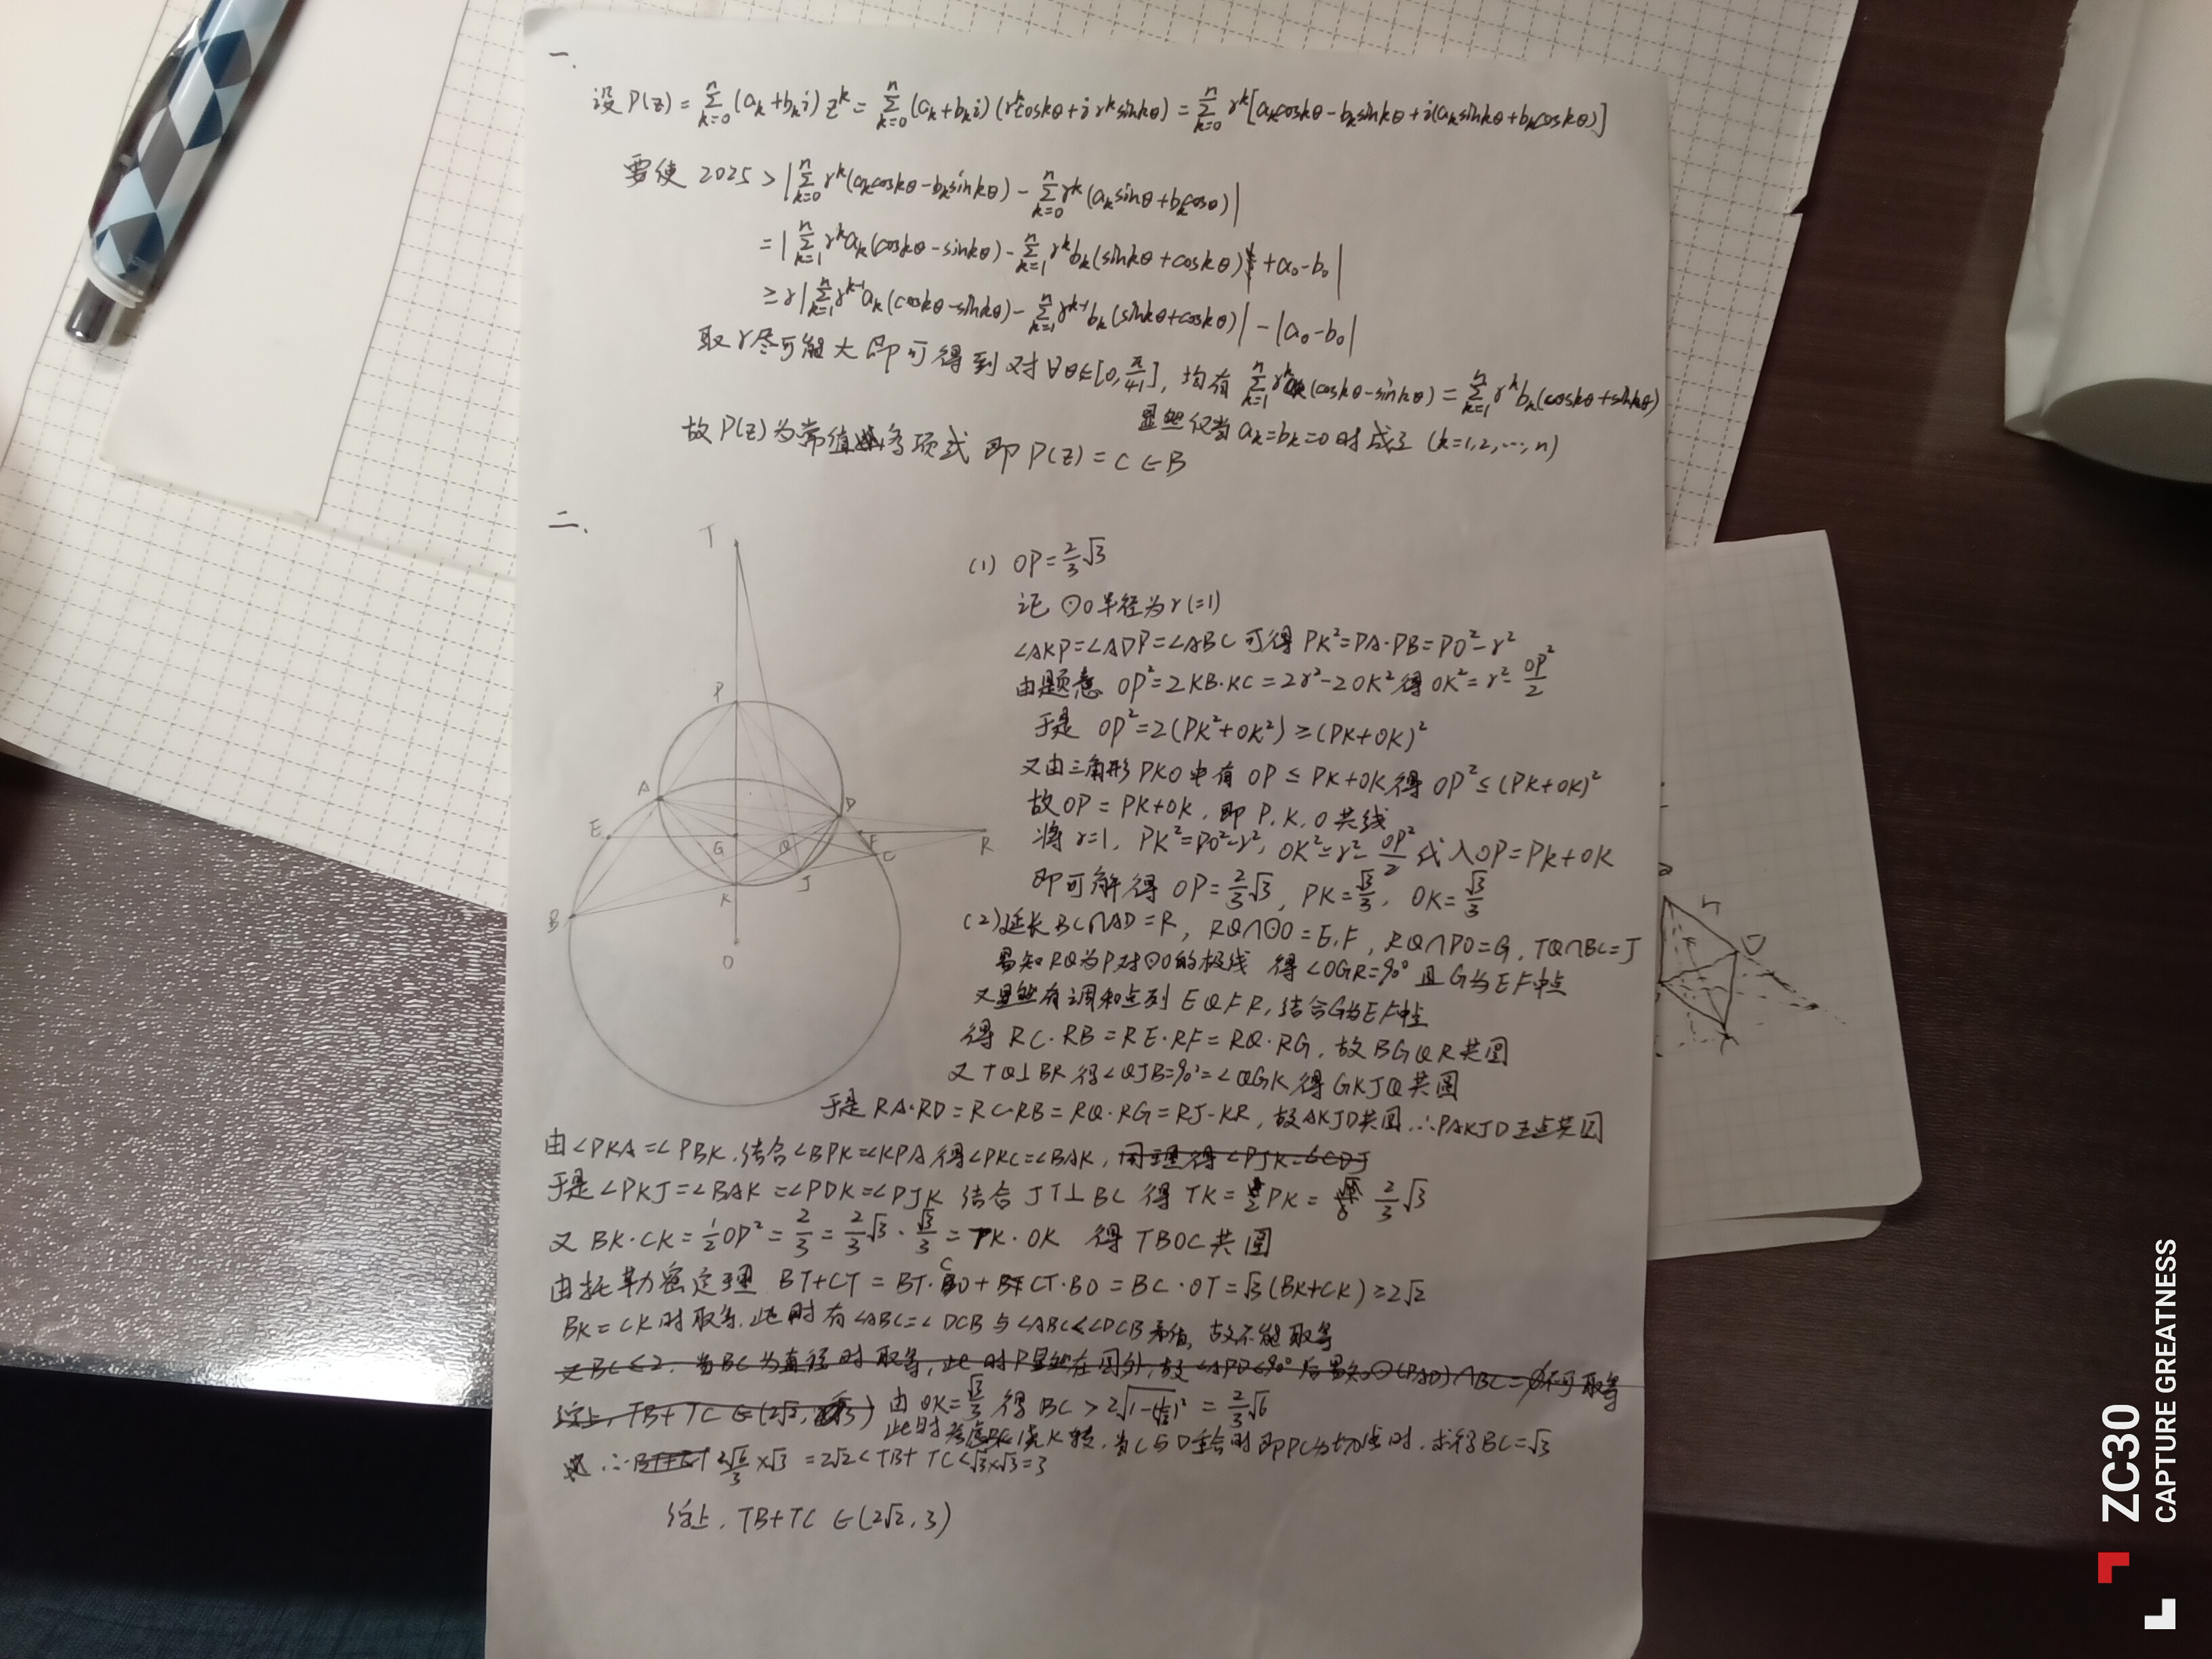 一.
设 P(z) = Σ_{k=0}^{n} (a_k+b_k i) z^k = Σ_{k=0}^{n} (a_k+b_k i) (r^k coskθ + i r^k sinkθ) = Σ_{k=0}^{n} r^k [a_k coskθ - b_k sinkθ + i(a_k sinkθ + b_k coskθ)]
要使 2025 > |Σ_{k=0}^{n} r^k (a_k coskθ - b_k sinkθ) - Σ_{k=0}^{n} r^k (a_k sinθ + b_k cosθ)|
= |Σ_{k=1}^{n} r^k a_k (coskθ - sinkθ) - Σ_{k=1}^{n} r^k b_k (sinkθ + coskθ) + a_0 - b_0|
≥ r|Σ_{k=1}^{n} r^{k-1} a_k (coskθ - sinkθ) - Σ_{k=1}^{n} r^{k-1} b_k (sinkθ + coskθ)| - |a_0 - b_0|
取 r 尽可能大即可得到对 ∀θ∈[0, π/41], 均有 Σ_{k=1}^{n} r^k a_k (coskθ - sinkθ) = Σ_{k=1}^{n} r^k b_k (coskθ + sinkθ)
显然仅当 a_k = b_k = 0 时成立 (k=1,2,…,n)
故 P(z) 为常值多项式 即 P(z) = C ∈ B
二.
T
P
A
D
E
G
Q
F
C
R
K
J
B
O
(1) OP = 2/3 √3
记 ⊙O 半径为 r (=1)
∠AKP = ∠ADP = ∠ABC 可得 PK² = PA·PB = PO² - r²
由题意 OP² = 2KB·KC = 2r² - 2OK² 得 OK² = r² - OP²/2
于是 OP² = 2(PK² + OK²) ≥ (PK + OK)²
又由三角形 PKO 中有 OP ≤ PK + OK 得 OP² ≤ (PK + OK)²
故 OP = PK + OK, 即 P, K, O 共线
将 r=1, PK² = PO² - r², OK² = r² - OP²/2 代入 OP = PK + OK
即可解得 OP = 2/3 √3, PK = √3/3, OK = √3/3
(2) 延长 BC∩AD = R, RQ∩⊙O = E, F, RQ∩PO = G, TQ∩BC = J
易知 RQ 为 P 对⊙O 的极线 得 ∠OGR = 90° 且 G 为 EF 中点
又显然有调和点列 EQFR, 结合 G 为 EF 中点
得 RC·RB = RE·RF = RQ·RG, 故 BGQR 共圆
又 TQ⊥BR 得 ∠QJB = 90° = ∠QGK 得 GKJQ 共圆
于是 RA·RD = RC·RB = RQ·RG = RJ·KR, 故 AKJD 共圆 ∴PAKJD 五点共圆
由 ∠PKA = ∠PBK, 结合 ∠BPK = ∠KPA 得 ∠PKC = ∠BAK, 同理得 ∠PJK = ∠CDJ
于是 ∠PKJ = ∠BAK = ∠PDK = ∠PJK 结合 JT⊥BC 得 TK = 2PK = 2/3 √3
又 BK·CK = 1/2 OP² = 2/3 = 2/3 √3 · √3/3 = TK·OK 得 TBOC 共圆
由托勒密定理 BT+CT = BT·CO + CT·BO = BC·OT = √3 (BK+CK) ≥ 2√2
BK = CK 时取等, 此时有 ∠ABC = ∠DCB 与 ∠ABC < ∠DCB 矛盾, 故不能取等
又 BC ≤ 2. 当 BC 为直径时取等, 此时 P 显然在圆外, 故 ∠APD<90° 后易知⊙(PAD)∩BC = ∅ 不可取等
综上, TB+TC ∈ (2√2, 2√3) 由 OK = √3/3 得 BC > 2√(1-(1/√3)²) = 2/3 √6
此时考虑 BC 绕 K 转, 当 C 与 D 重合时即 PC 为切线时, 求得 BC = √3
∴ 2√6/3 × √3 = 2√2 < TB+TC < √3×√3 = 3
综上, TB+TC ∈ (2√2, 3)
ZC30
CAPTURE GREATNESS